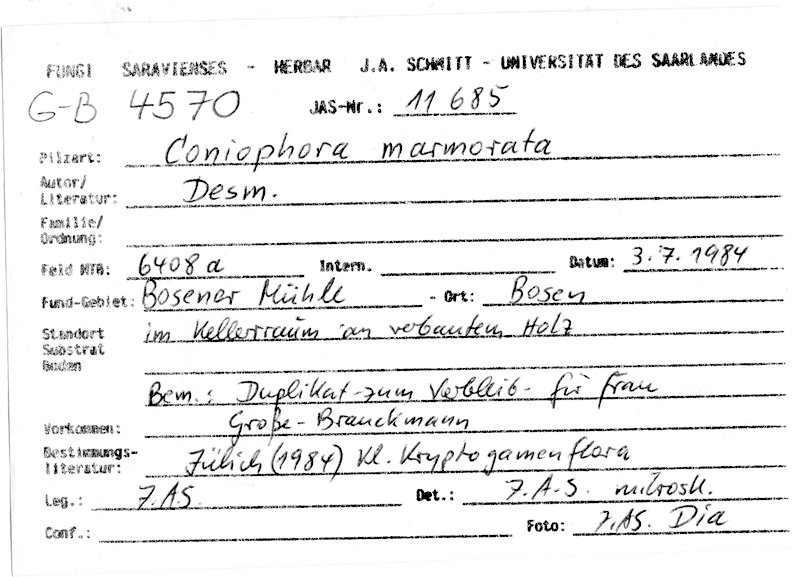 FUNGI SARAVIENSES - HERBAR J.A. SCHMITT - UNIVERSITÄT DES SAARLANDES
G-B 4570 JAS-Nr.: 11 685
Pilzart: Coniophora marmorata
Autor/
Literatur: Desm.
Familie/
Ordnung:
Feld MTB: 6408 a Intern. Datum: 3.7.1984
Fund-Gebiet: Bosener Mühle - Ort: Bosen
Standort im Kellerraum an verbautem Holz
Substrat
Boden
Bem.: Duplikat-zum Verbleib- für Frau
Vorkommen: Große-Brauckmann
Bestimmungs-
literatur: Jülich (1984) Kl. Kryptogamenflora
Leg.: J.AS. Det.: J.A-S. mikrosk.
Conf.: Foto: J.AS. Dia